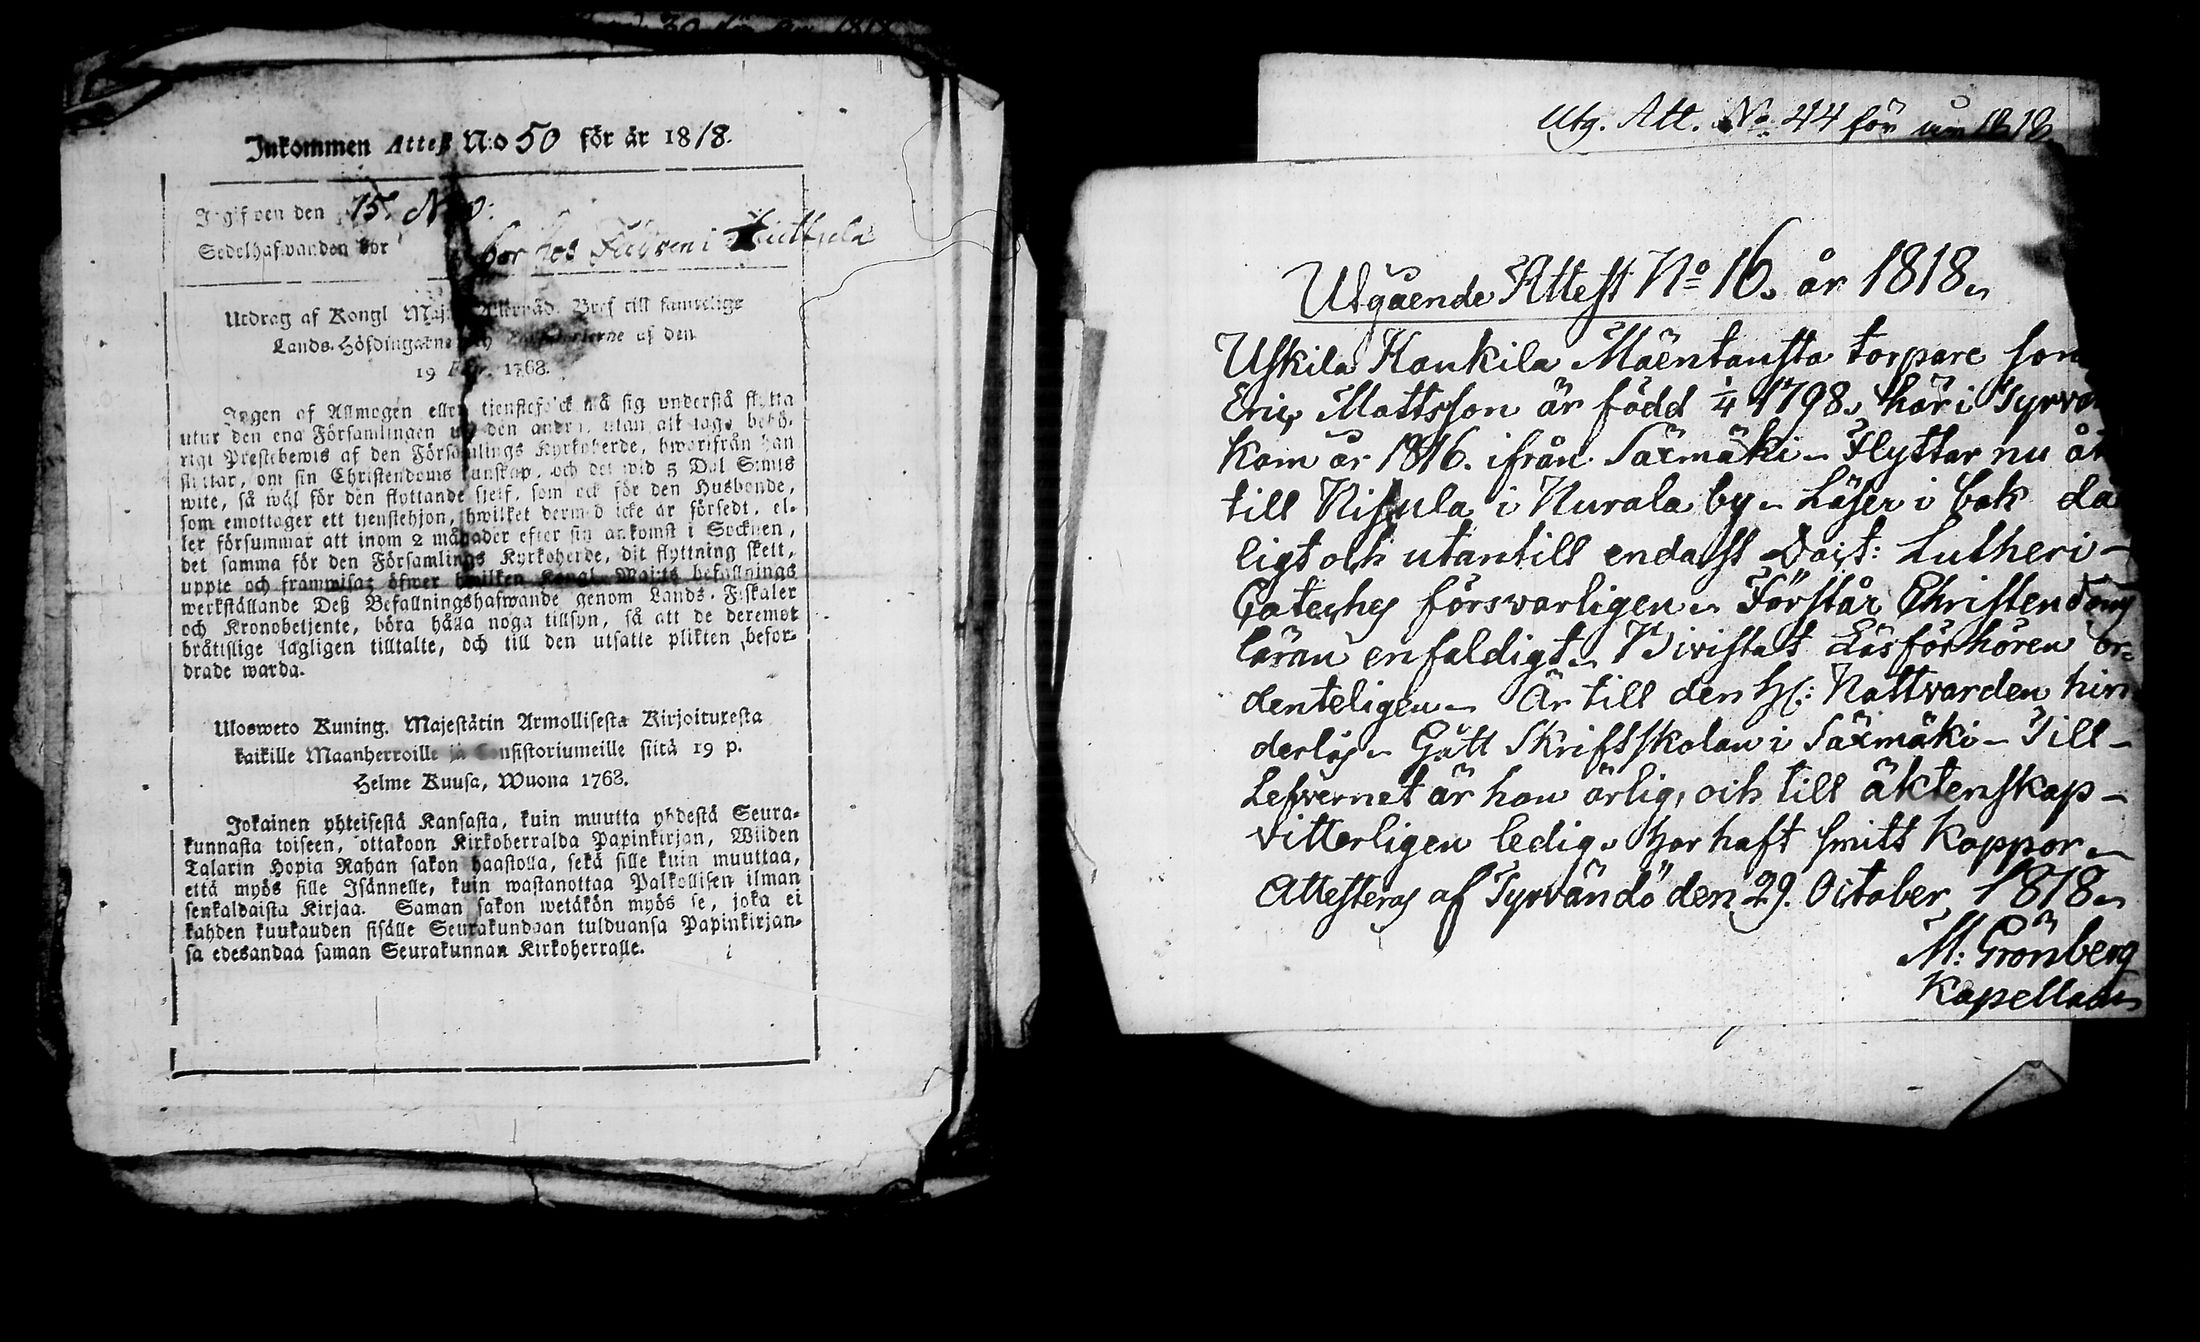 Inkommen Attest N:o 50 för år 1818.
Ingifven den 15. Nov:
Sedelhafvanden bor bor hos
Utdrag af Kongl Maj:ts Bref till samtelige
Lands-Höfdingarne och af den
19 Febr. 1768.
Ingen af Allmogen eller tjenstefolck må sig understå flytta
utur den ena Församlingen uti den andra, utan att taga behö-
rigt Prestebewis af den Församlings Kyrkoherde, hwarifrån han
flyttar, om sin Christendoms kunskap, och det wid 5 Dal S:mts
wite, så wäl för den flyttande sielf, som ock för den Husbonde,
som emottager ett tjenstehjon, hwilket dermed icke är försedt, el-
ler försummar att inom 2 månader efter sin ankomst i Socknen,
det samma för den Församlings Kyrkoherde, dit flyttning skett,
uppte och framwisa; öfwer hwilken Kongl. Maj:ts befallnings
werkställande Deß Befallningshafwande genom Lands-Fiskaler
och Kronobetjente, böra hålla noga tillsyn, så att de deremot
bråttslige lagligen tilltalte, och till den utsatte plikten befor-
drade warda.
Ulosweto Kuning. Majestätin Armollisesta Kirjoituxesta
kaikille Maanherroille ja Consistoriumeille siitä 19 p.
Helme Kuusa, Wuona 1768.
Jokainen yhteisestä Kansasta, kuin muutta yhdestä Seura-
kunnasta toiseen, ottakoon Kirkoherralda Papinkirjan, Wiiden
Talarin Hopia Rahan sakon haastolla, sekä sille kuin muuttaa,
että myös sille Isännelle, kuin wastanottaa Palkollisen ilman
senkaldaista Kirjaa. Saman sakon wetäkön myös se, joka ei
kahden kuukauden sisälle Seurakundaan tulduansa Papinkirjan-
sa edesandaa saman Seurakunnan Kirkoherralle.
Utg. Att. No 44 för 1818
Utgående Attest No 16. år 1818.
Uskila Kaukila Mäentausta torpare son
Eric Mattsson är född 1/4 1798. här i Tyrvä
kom år 1816. ifrån Säxmäki - Flyttar nu åt
till Nisula i Nurala by - Läser i bok då
ligt och utantill endast Doct: Lutheri -
Cateches försvarligen - Förstår Christendoms
läran enfaldigt - Bivistat Läsförhören or=
denteligen - Är till den H: Nattvarden hin
derlös - Gått Skriftskolan i Säxmäki - Till -
Lefvernet är han ärlig, och till äktenskap -
vitterligen ledig. har haft smitt koppor -
Attesteras af Tyrvändö den 29. October 1818.
M: Grönberg
Kapellan